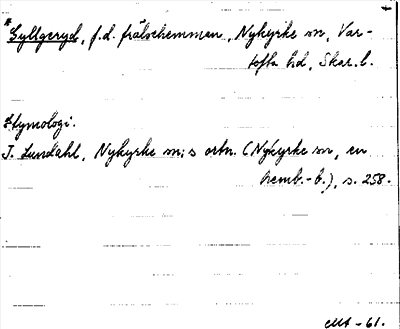 *Gyllgeryd, f.d. frälsehemman, Nykyrke sn, Var-
tofta hd, Skar.l.
Etymologi.
I. Lundahl, Nykyrke sn:s ortn. (Nykyrke sn, en
hemb.-b.), s. 258.
-61.